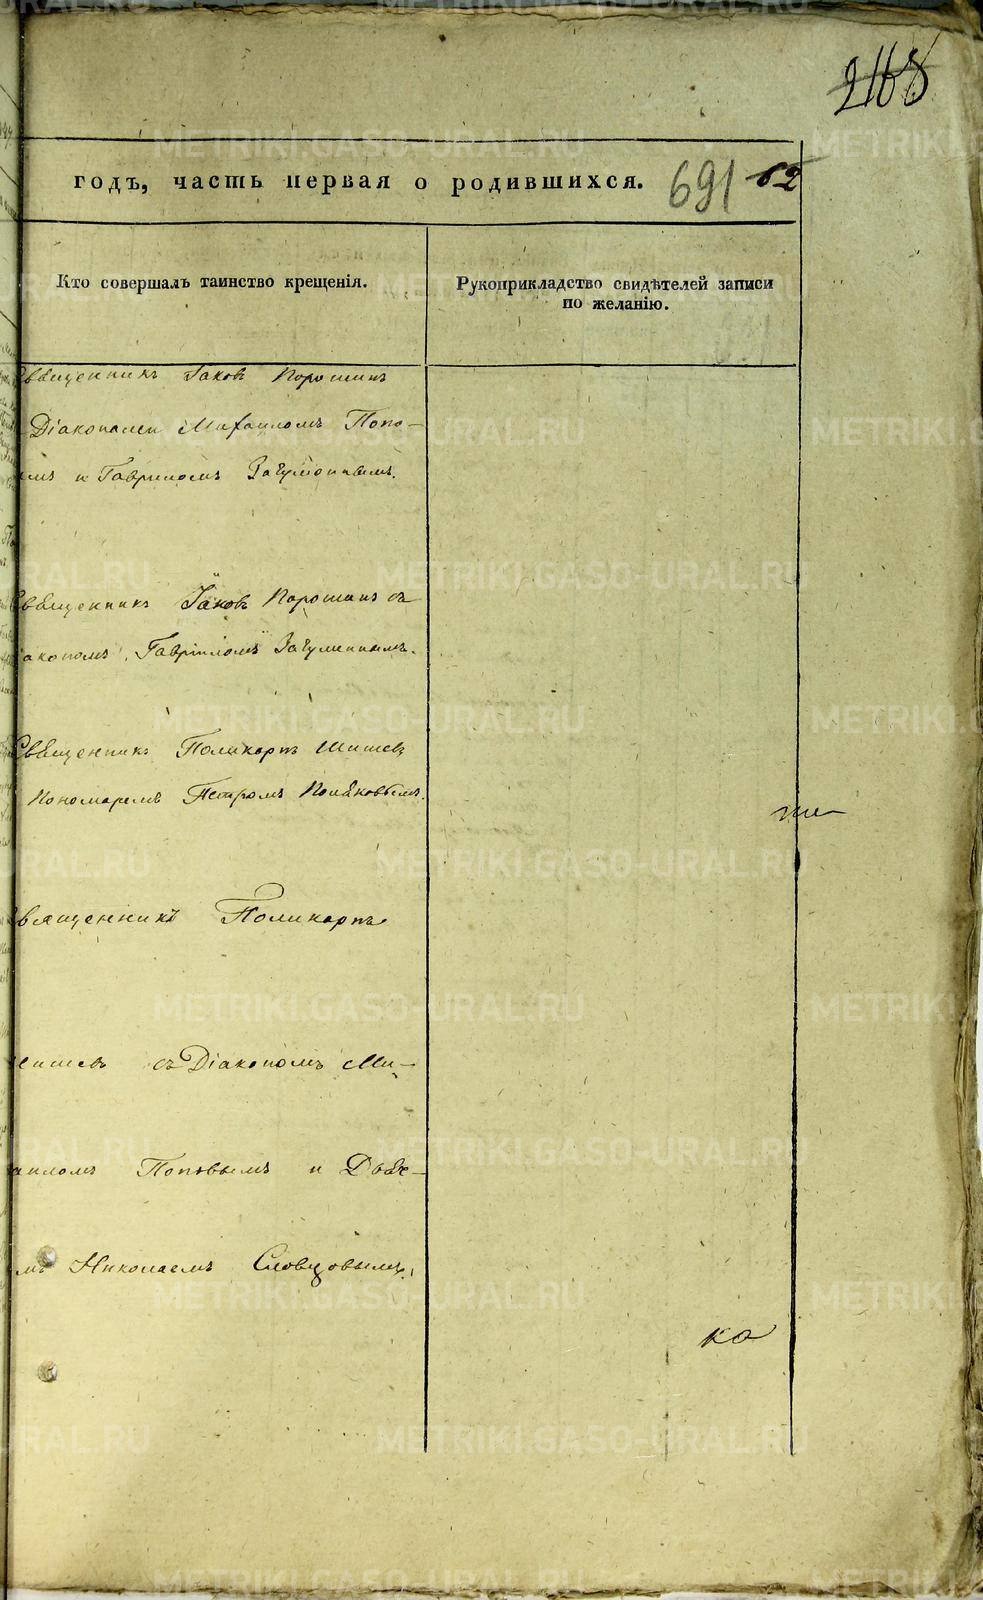 2168
годъ, часть первая о родившихся. 691 62
Кто совершалъ таинство крещенія.
Рукоприкладство свидѣтелей записи
по желанію.
Священникъ Іаковъ Порошинъ
Діаконами Михаиломъ Попо-
и Гавриломъ
Священникъ Іаковъ Порошинъ съ
Діакономъ Гавріиломъ
Священникъ Поликарпъ
Пономаремъ Петромъ
Священникъ Поликарпъ
съ Діакономъ Ми-
хаиломъ Поповымъ и
Николаемъ Словцовымъ.
ка
METRIKI.GASO-URAL.RU